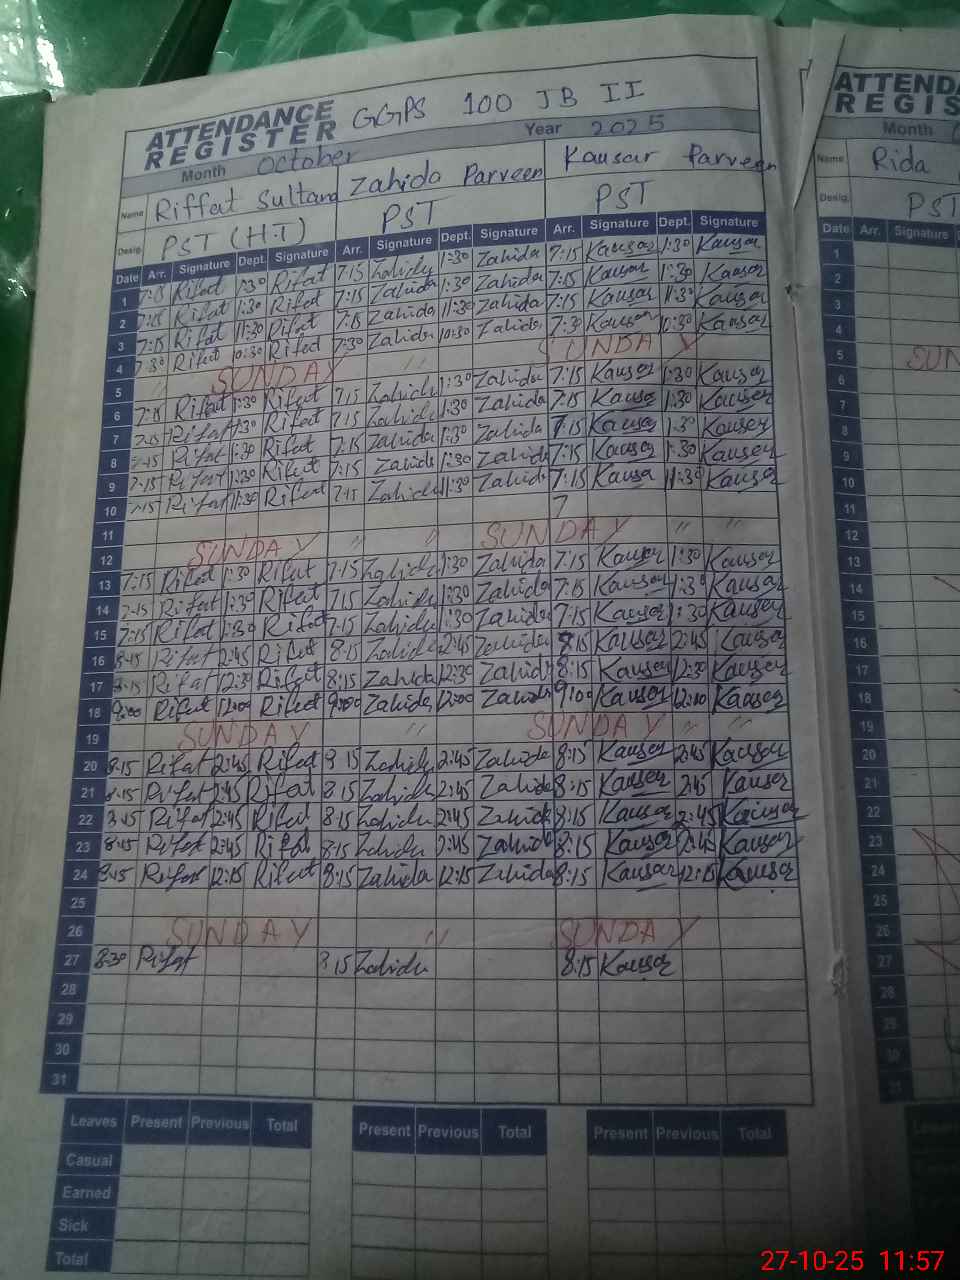 ATTENDANCE REGISTER GGPS 100 JB II
Month October Year 2025
Name Riffat Sultana Zahida Parveen Kausar Parveen
Desig. PST (H.T) PST PST
Date Arr. Signature Dept. Signature Arr. Signature Dept. Signature Arr. Signature Dept. Signature
1 7:15 Rifat 1:30 Rifat 7:15 Zahida 1:30 Zahida 7:15 Kausar 1:30 Kausar
2 7:15 Rifat 1:30 Rifat 7:15 Zahida 1:30 Zahida 7:15 Kausar 1:30 Kausar
3 7:15 Rifat 11:30 Rifat 7:15 Zahida 11:30 Zahida 7:15 Kausar 11:30 Kausar
4 7:30 Rifat 10:30 Rifat 7:30 Zahida 10:30 Zahida 7:30 Kausar 10:30 Kausar
5 SUNDAY " SUNDAY
6 7:15 Rifat 1:30 Rifat 7:15 Zahida 1:30 Zahida 7:15 Kausar 1:30 Kausar
7 7:15 Rifat 1:30 Rifat 7:15 Zahida 1:30 Zahida 7:15 Kausar 1:30 Kausar
8 7:15 Rifat 1:30 Rifat 7:15 Zahida 1:30 Zahida 7:15 Kausar 1:30 Kausar
9 7:15 Rifat 1:30 Rifat 7:15 Zahida 1:30 Zahida 7:15 Kausar 1:30 Kausar
10 7:15 Rifat 11:30 Rifat 7:15 Zahida 11:30 Zahida 7:15 Kausar 11:30 Kausar
11 7
12 SUNDAY " " SUNDAY " "
13 7:15 Rifat 1:30 Rifat 7:15 Zahida 1:30 Zahida 7:15 Kausar 1:30 Kausar
14 7:15 Rifat 1:30 Rifat 7:15 Zahida 1:30 Zahida 7:15 Kausar 1:30 Kausar
15 7:15 Rifat 1:30 Rifat 7:15 Zahida 1:30 Zahida 7:15 Kausar 1:30 Kausar
16 8:15 Rifat 2:45 Rifat 8:15 Zahida 2:45 Zahida 8:15 Kausar 2:45 Kausar
17 8:15 Rifat 12:30 Rifat 8:15 Zahida 12:30 Zahida 8:15 Kausar 12:30 Kausar
18 9:00 Rifat 12:00 Rifat 9:00 Zahida 12:00 Zahida 9:00 Kausar 12:00 Kausar
19 SUNDAY " SUNDAY " "
20 8:15 Rifat 2:45 Rifat 8:15 Zahida 2:45 Zahida 8:15 Kausar 2:45 Kausar
21 8:15 Rifat 2:45 Rifat 8:15 Zahida 2:45 Zahida 8:15 Kausar 2:45 Kausar
22 8:15 Rifat 2:45 Rifat 8:15 Zahida 2:45 Zahida 8:15 Kausar 2:45 Kausar
23 8:15 Rifat 2:45 Rifat 8:15 Zahida 2:45 Zahida 8:15 Kausar 2:45 Kausar
24 8:15 Rifat 12:15 Rifat 8:15 Zahida 12:15 Zahida 8:15 Kausar 12:15 Kausar
25
26 SUNDAY " SUNDAY
27 8:30 Rifat 8:15 Zahida 8:15 Kausar
28
29
30
31
Leaves Present Previous Total Present Previous Total Present Previous Total
Casual
Earned
Sick
Total
REGIS
Month
Name Rida
Desig. PST
Date Arr. Signature
1
2
3
4
5 SUN
6
7
8
9
10
11
12
13
14
15
16
17
18
19
20
21
22
23
24
25
26
27
28
29
30
31
27-10-25 11:57